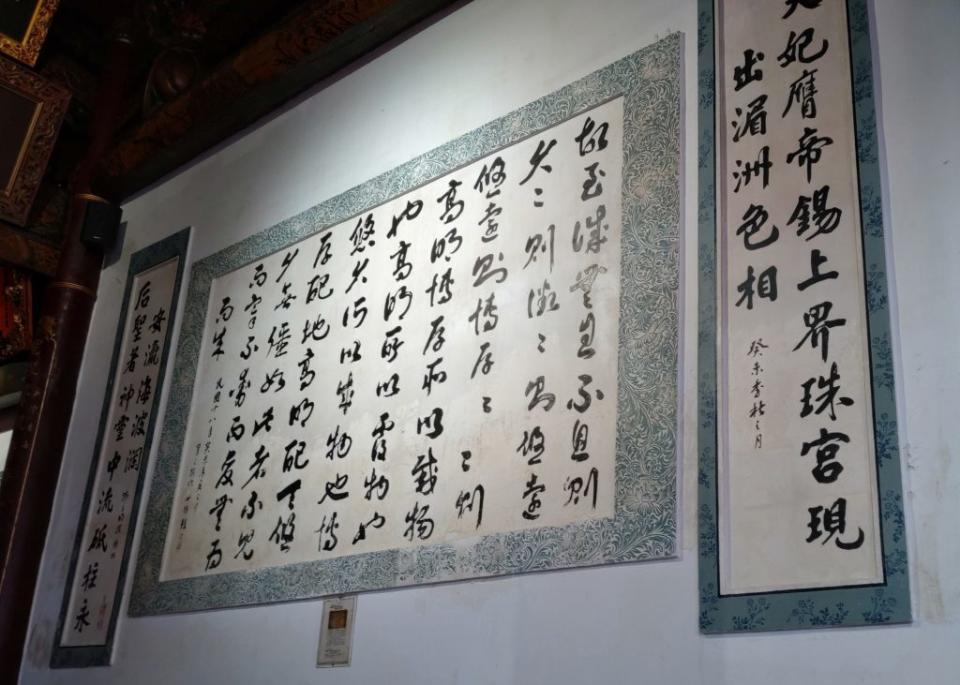 天妃膺帝錫上界珠宮現
出湄洲色相
癸未季秋之月
故至誠無息不息則
久〻則徵〻則悠遠
悠遠則博厚〻〻則
高明博厚所以載物
也高明所以覆物也
悠久所以成物也博
厚配地高明配天悠
久無疆如此者不見
而章不動而變無為
而成
民國十八年
后聖著神靈中流砥柱永
安瀛海波瀾